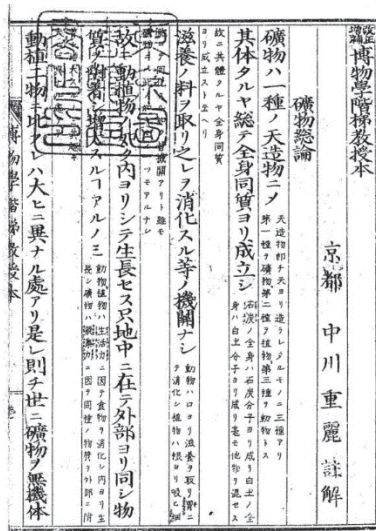 改正増補 博物學階梯教授本
京都 中川重麗 註解
礦物總論
礦物ハ一種ノ天造物ニメ 天造物即チ天ヨリ造ラレタルモノニ三種アリ第一種ヲ礦物第二種ヲ植物第三種ヲ動物トス
其体タルヤ總テ全身同質ヨリ成立シ 石炭ノ全身ハ石炭分子ヨリ成リ白土ノ全身ハ白土分子ヨリ成リ毫モ他物ヲ混セス
故ニ其體タルヤ全身同質ヨリ成立スト云ヘリ
滋養ノ料ヲ取リ之レヲ消化スル等ノ機關ナシ 動物ハ口ヨリ滋養ヲ取リ胃ニテ消化シ植物ハ根ヨリ吸
故ニ動植物ノ如ク内ヨリシテ生長セス只地中ニ在テ外部ヨリ同シ物
質ノ附着シ増大スルヿアルノミ 動物植物ハ生活力ニ因テ食物ヲ消化シ内ヨリ生長シ礦物ハ 因テ同種ノ物質ヲ外部ニ附
動植二物ニ比スレハ大ヒニ異ナル處アリ是レ則チ世ニ礦物ヲ無機体
博物學階梯教授本